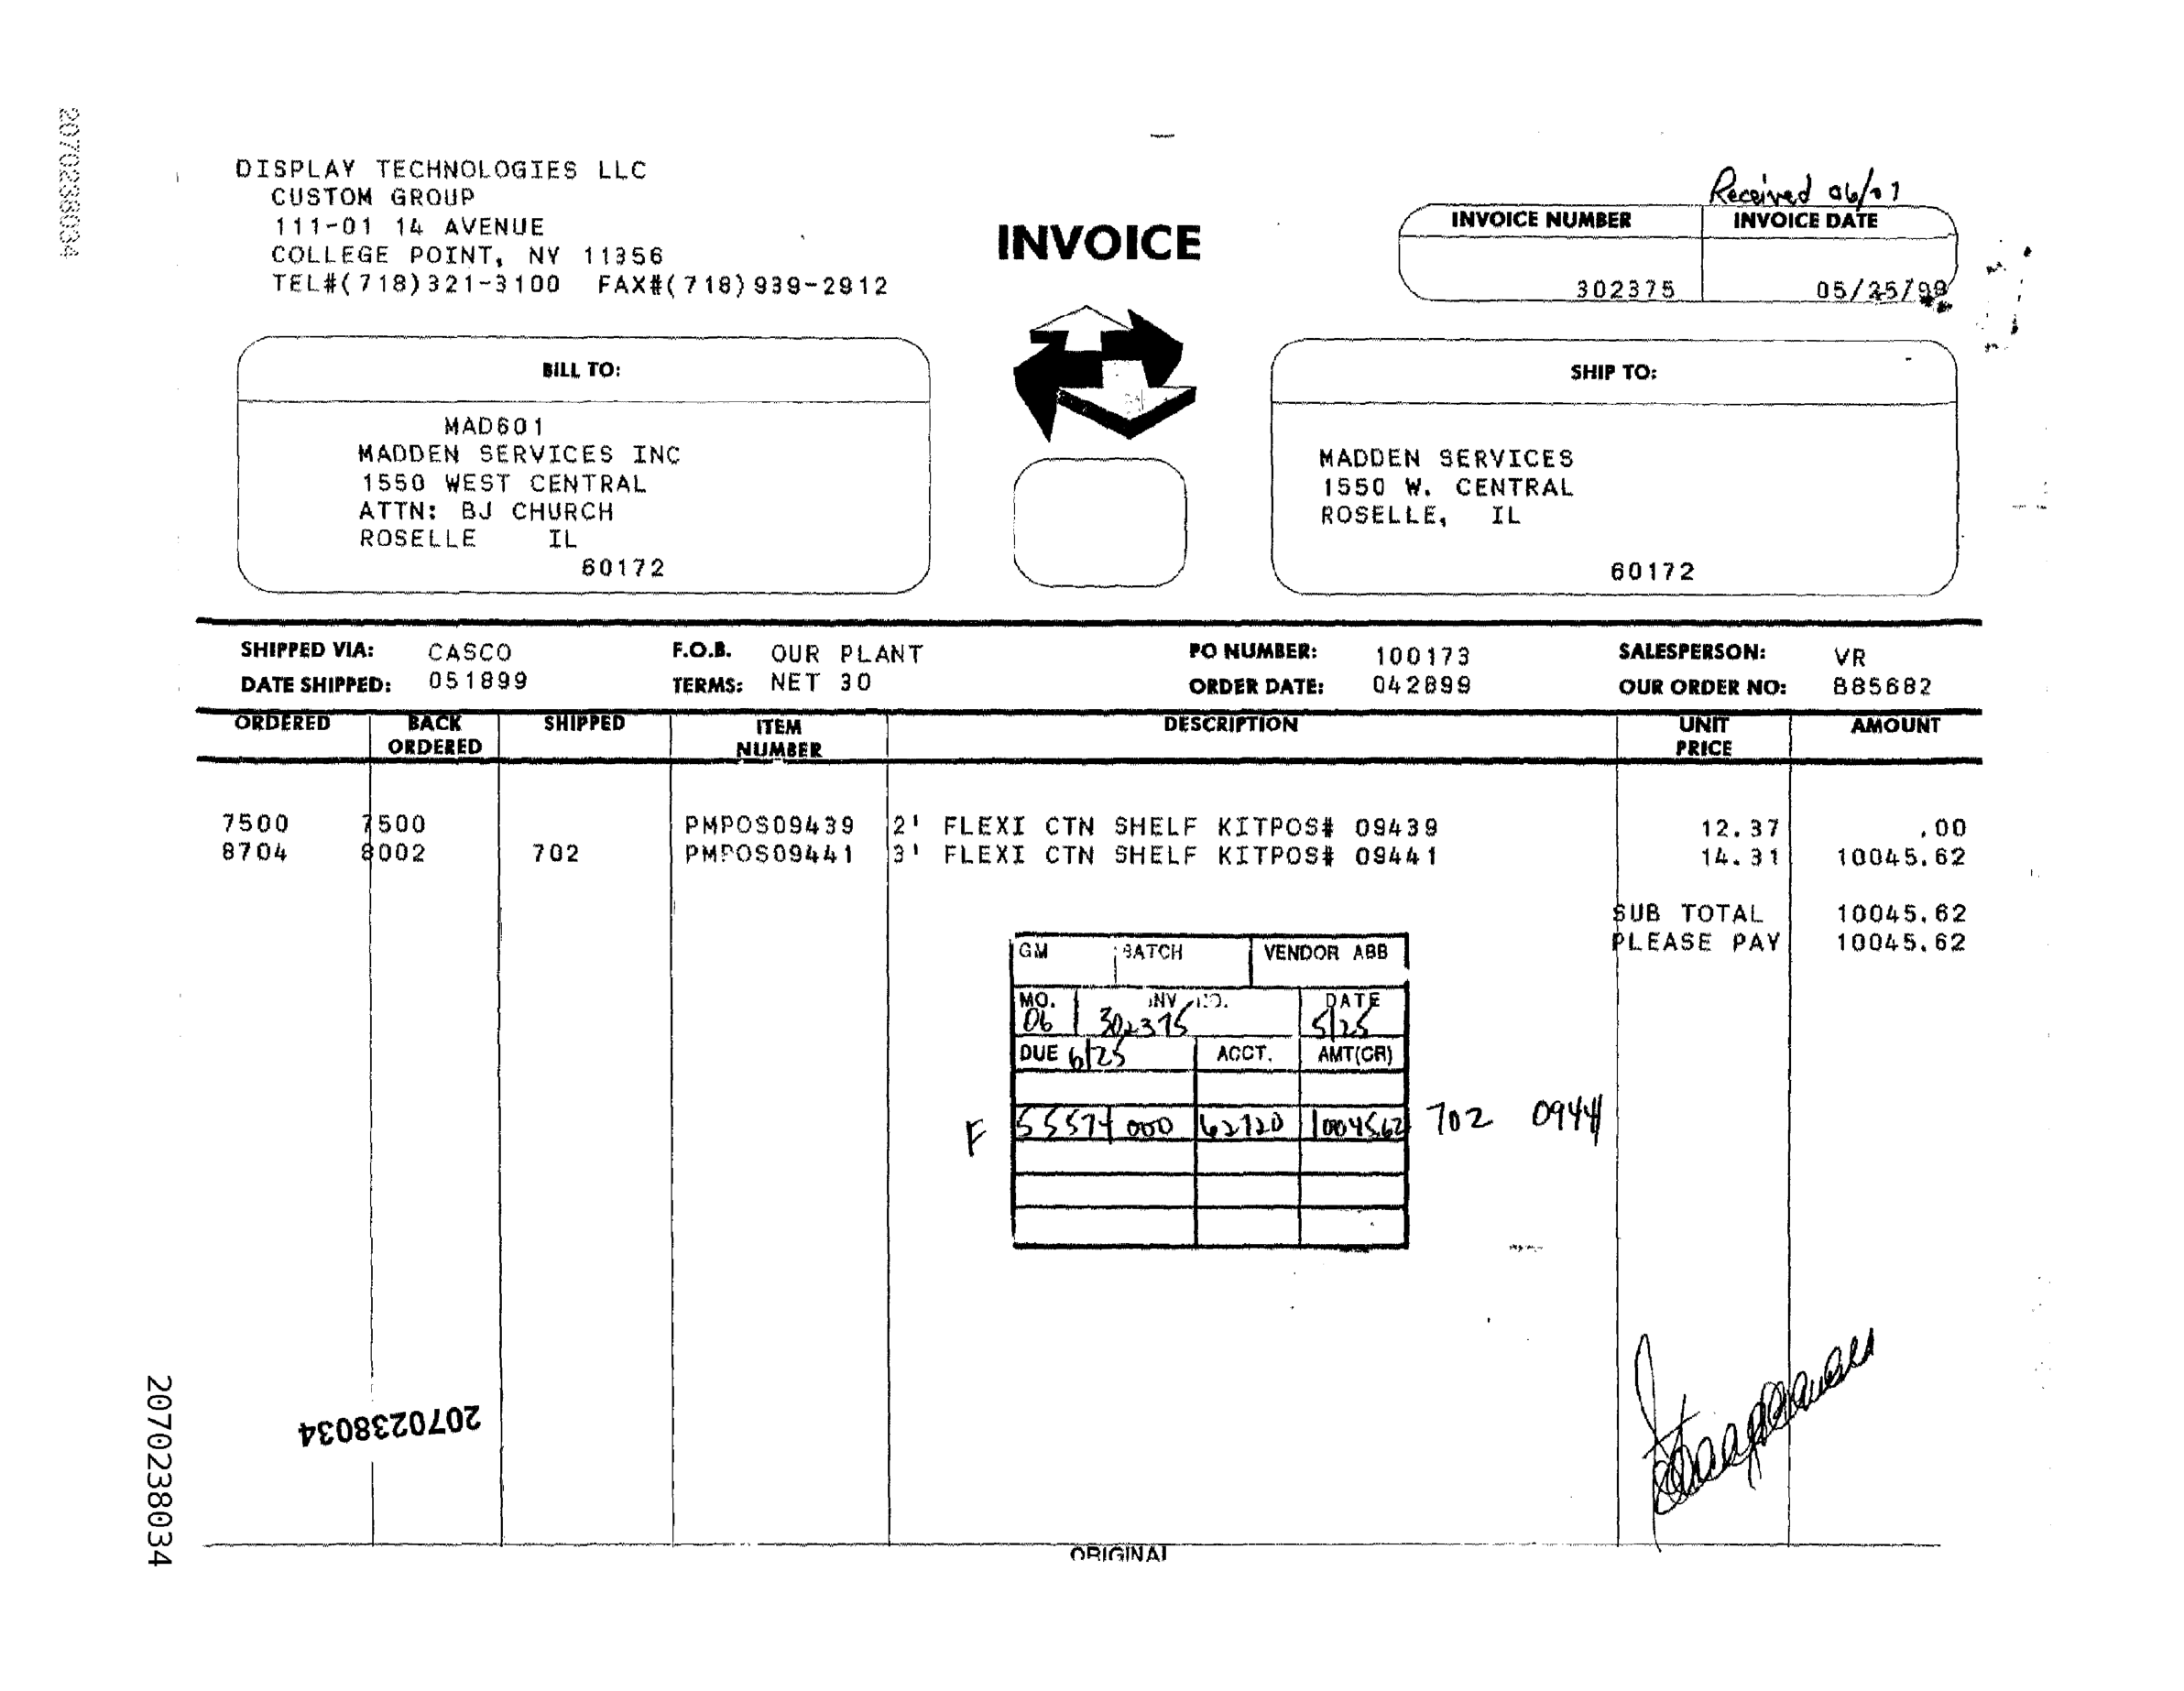 2070238034
DISPLAY TECHNOLOGIES LLC
CUSTOM GROUP
111-01 14 AVENUE
COLLEGE POINT, NY 11356
TEL#(718)321-3100 FAX#(718)939-2912
INVOICE
Received 06/07
INVOICE NUMBER INVOICE DATE
302375 05/25/99
BILL TO:
MAD601
MADDEN SERVICES INC
1550 WEST CENTRAL
ATTN: BJ CHURCH
ROSELLE IL
60172
SHIP TO:
MADDEN SERVICES
1550 W. CENTRAL
ROSELLE, IL
60172
SHIPPED VIA: CASCO F.O.B. OUR PLANT PO NUMBER: 100173 SALESPERSON: VR
DATE SHIPPED: 051899 TERMS: NET 30 ORDER DATE: 042899 OUR ORDER NO: 885682
ORDERED BACK ORDERED SHIPPED ITEM NUMBER DESCRIPTION UNIT PRICE AMOUNT
7500 7500 PMPOS09439 2' FLEXI CTN SHELF KITPOS# 09439 12.37 .00
8704 8002 702 PMPOS09441 3' FLEXI CTN SHELF KITPOS# 09441 14.31 10045.62
SUB TOTAL 10045.62
PLEASE PAY 10045.62
GM BATCH VENDOR ABB
MO. INV. NO. DATE
06 302375 5/25
DUE 6/25 ACCT. AMT(CR)
F 55574 000 62720 10045.62 702 09441
2070238034
2070238034
ORIGINAL